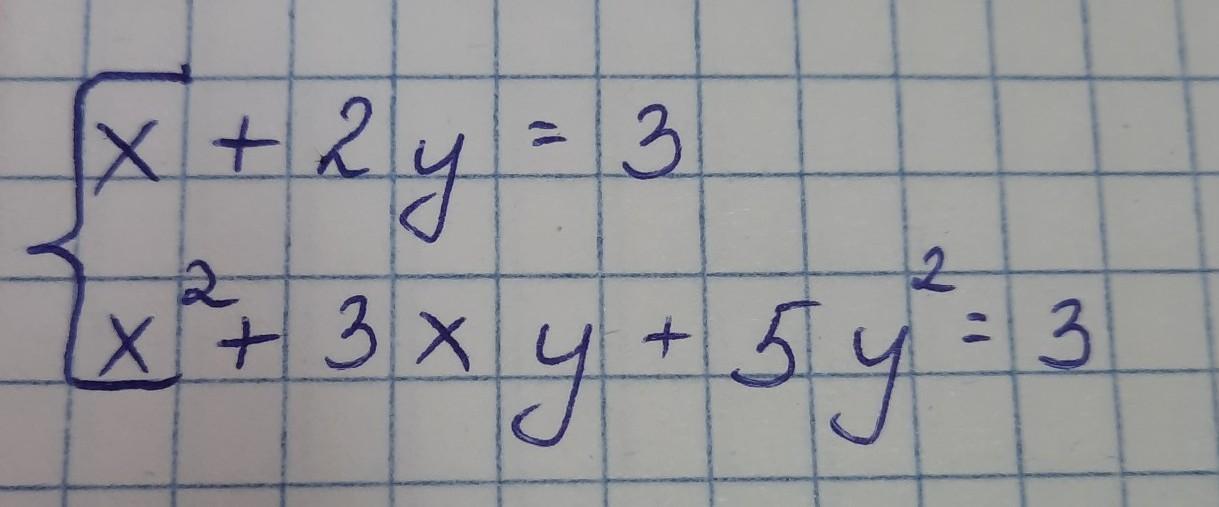 x + 2y = 3
x² + 3xy + 5y² = 3